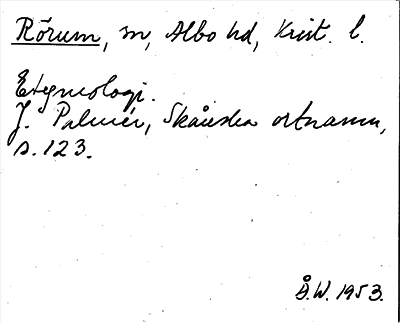 Rörum, m, Albo hd, Krist. l.
Etymologi.
J. Palmér, Skånska ortnamn,
s. 123.
Å.W. 1953.